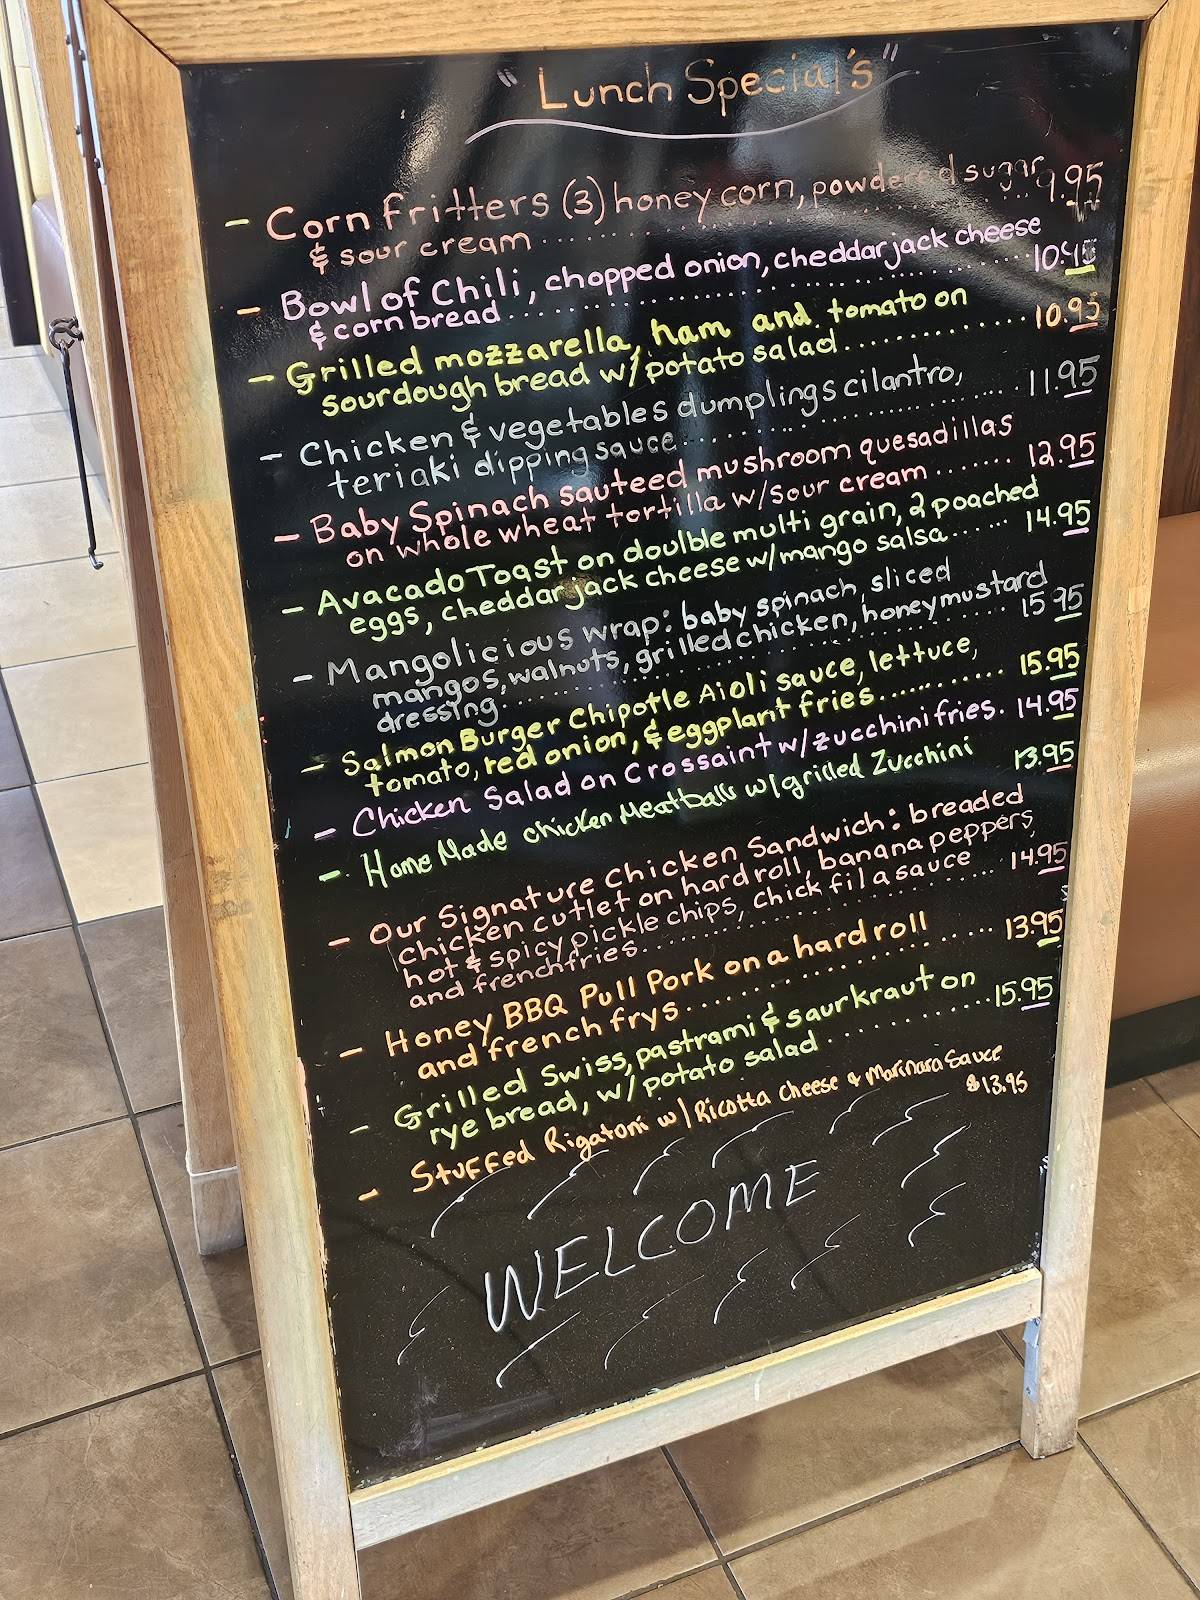 "Lunch Special's"
- Corn fritters (3) honey corn, powdered sugar
& sour cream ........ 9.95
- Bowl of Chili, chopped onion, cheddar jack cheese
& corn bread ........
- Grilled mozzarella, ham and tomato on
sourdough bread w/ potato salad ........ 10.95
- Chicken & vegetables dumplings cilantro,
teriaki dipping sauce ........ 11.95
- Baby Spinach sauteed mushroom quesadillas
on whole wheat tortilla w/ sour cream ....... 12.95
- Avacado Toast on doulble multi grain, 2 poached
eggs, cheddar jack cheese w/ mango salsa ...... 14.95
- Mangolicious wrap: baby spinach, sliced
mangos, walnuts, grilled chicken, honey mustard
dressing ........ 15.95
- Salmon Burger Chipotle Aioli sauce, lettuce,
tomato, red onion, & eggplant fries ........ 15.95
- Chicken Salad on Crossaint w/ zucchini fries. 14.95
- Home Made chicken Meatballs w/ grilled Zucchini 13.95
- Our Signature Chicken Sandwich: breaded
chicken cutlet on hard roll, banana peppers,
hot & spicy pickle chips, chick fil a sauce
and french fries ........ 14.95
- Honey BBQ Pull Pork on a hard roll
and french frys ........ 13.95
- Grilled Swiss, pastrami & saurkraut on
rye bread, w/ potato salad ........ 15.95
- Stuffed Rigatoni w/ Ricotta cheese & Marinara Sauce
$13.95
WELCOME